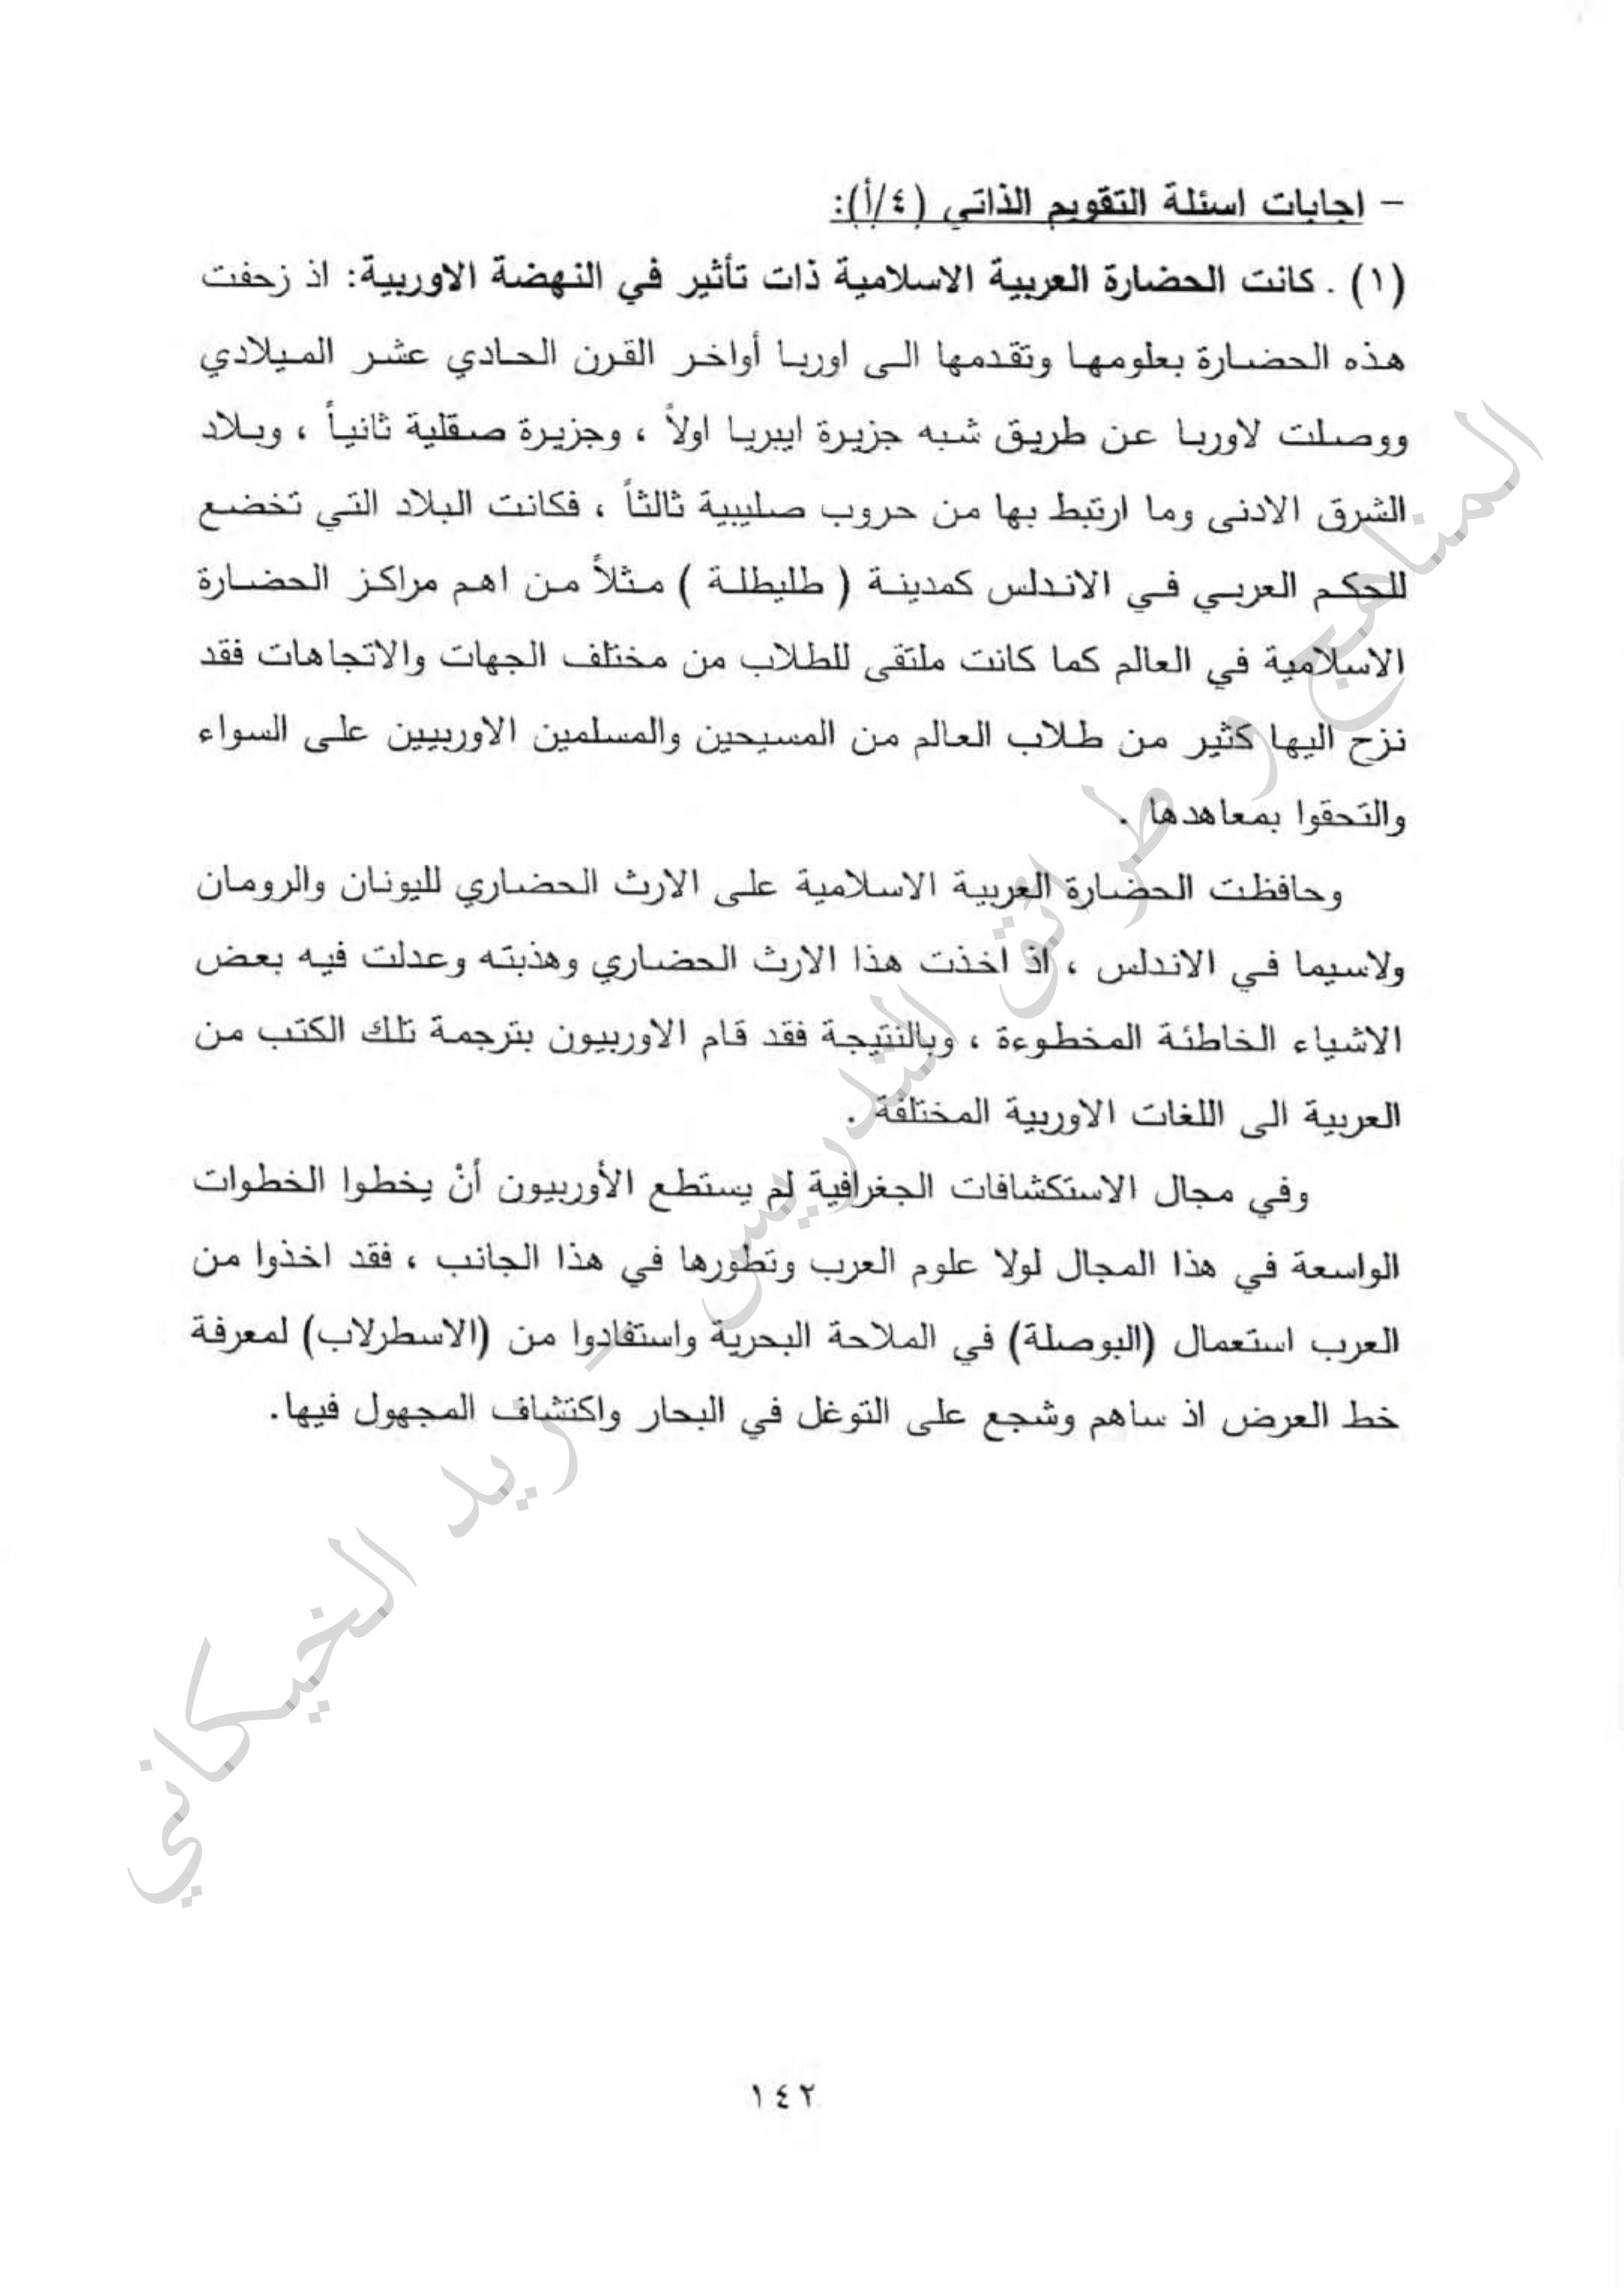 – اجابات اسئلة التقويم الذاتي (٤/أ):
(١) . كانت الحضارة العربية الاسلامية ذات تأثير في النهضة الاوربية: اذ زحفت
هذه الحضارة بعلومها وتقدمها الى اوربا أواخر القرن الحادي عشر الميلادي
ووصلت لاوربا عن طريق شبه جزيرة ايبريا اولاً ، وجزيرة صقلية ثانياً ، وبلاد
الشرق الادنى وما ارتبط بها من حروب صليبية ثالثاً ، فكانت البلاد التي تخضع
للحكم العربي في الاندلس كمدينة ( طليطلة ) مثلاً من اهم مراكز الحضارة
الاسلامية في العالم كما كانت ملتقى للطلاب من مختلف الجهات والاتجاهات فقد
نزح اليها كثير من طلاب العالم من المسيحين والمسلمين الاوربيين على السواء
والتحقوا بمعاهدها .
وحافظت الحضارة العربية الاسلامية على الارث الحضاري لليونان والرومان
ولاسيما في الاندلس ، اذ اخذت هذا الارث الحضاري وهذبته وعدلت فيه بعض
الاشياء الخاطئة المخطوءة ، وبالنتيجة فقد قام الاوربيون بترجمة تلك الكتب من
العربية الى اللغات الاوربية المختلفة .
وفي مجال الاستكشافات الجغرافية لم يستطع الأوربيون أنْ يخطوا الخطوات
الواسعة في هذا المجال لولا علوم العرب وتطورها في هذا الجانب ، فقد اخذوا من
العرب استعمال (البوصلة) في الملاحة البحرية واستفادوا من (الاسطرلاب) لمعرفة
خط العرض اذ ساهم وشجع على التوغل في البحار واكتشاف المجهول فيها.
المناهج و طرائق التدريس – رید الخيكاني
١٤٢